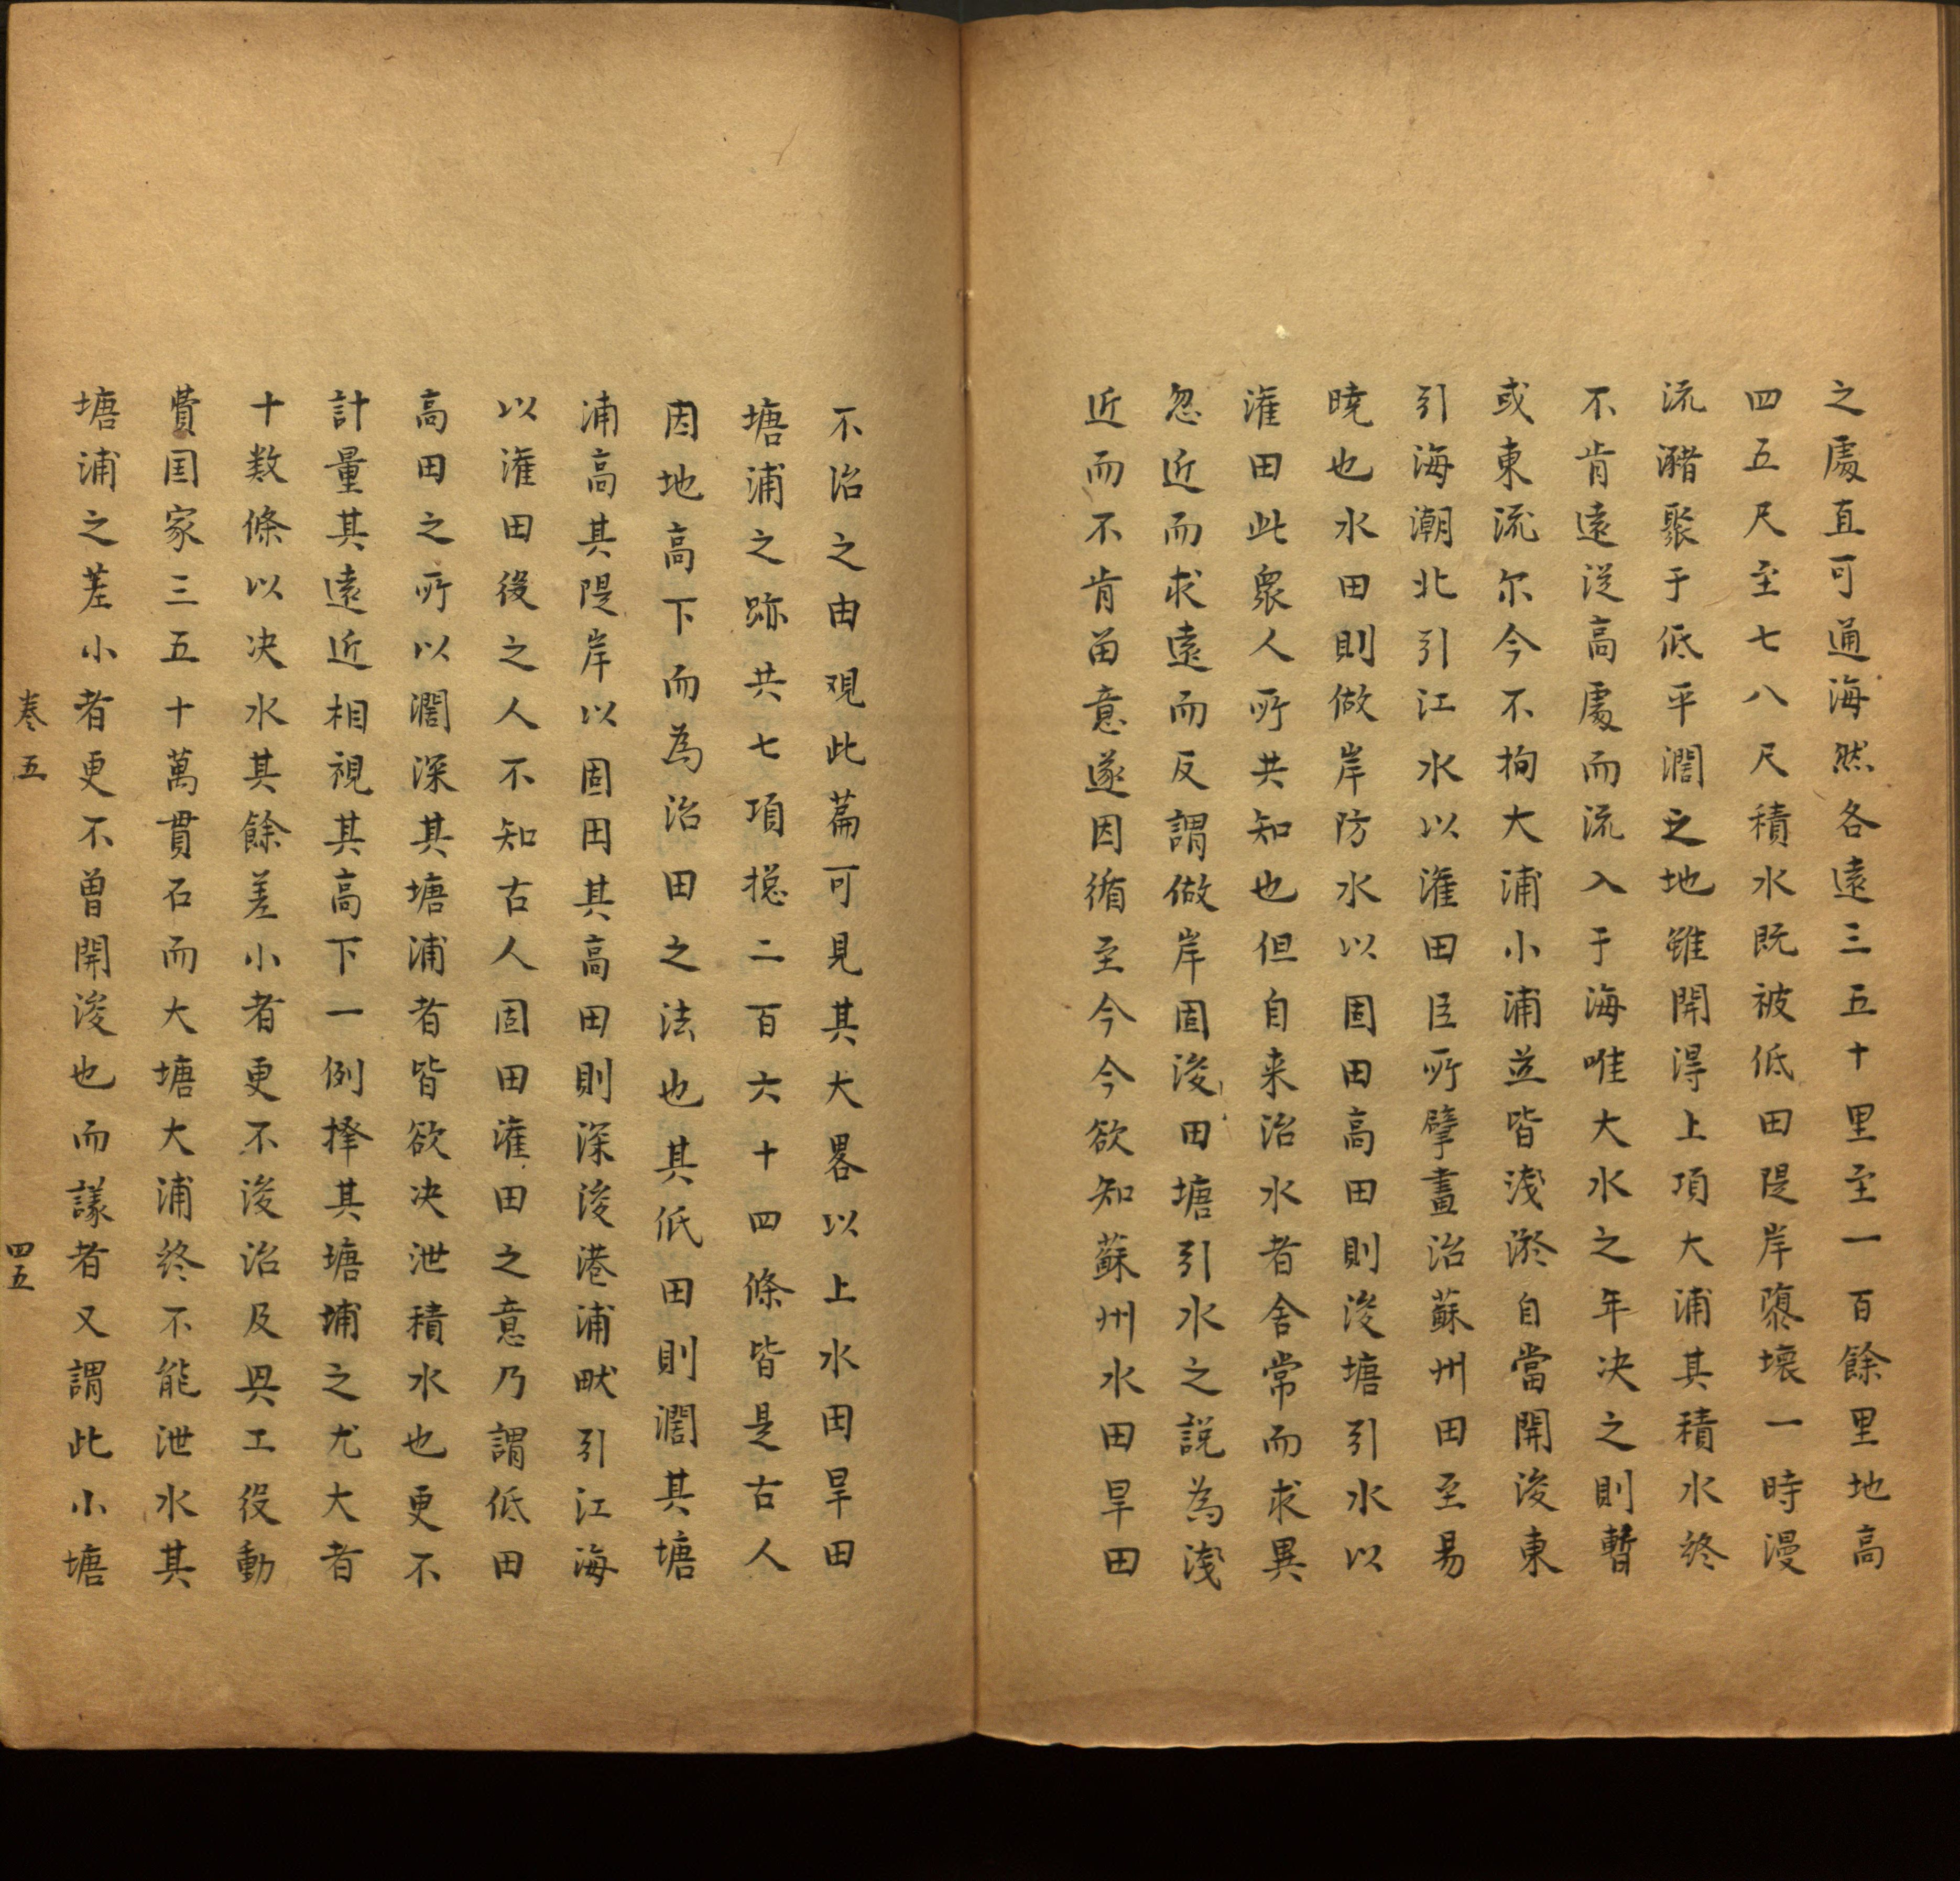 之處直可通海然各遠三五十里至一百餘里地高
四五尺至七八尺積水既被低田隄岸隳壊一時漫
流瀦聚于低平濶之地雖開得上項大浦其積水終
不肯遠從高處而流入于海唯大水之年决之則暫
或東流尔今不拘大浦小浦並皆淺淤自當開浚東
引海潮北引江水以灌田臣所擘畫治蘇州田至易
曉也水田則做岸防水以固田高田則浚塘引水以
灌田此衆人所共知也但自来治水者舍常而求異
忽近而求遠而反謂做岸固浚田塘引水之説為淺
近而不肯留意遂因循至今今欲知蘇州水田旱田
不治之由观此萹可見其大畧以上水田旱田
塘浦之跡共七項捴二百六十四條皆是古人
因地高下而為治田之法也其低田則濶其塘
浦高其隄岸以固田其高田則深浚港浦畎引江海
以灌田後之人不知古人固田灌田之意乃謂低田
高田之所以濶深其塘浦者皆欲决泄積水也更不
計量其遠近相視其高下一例擇其塘埔之尤大者
十数條以决水其餘差小者更不浚治及興工役動
費国家三五十萬貫石而大塘大浦終不能泄水其
塘浦之差小者更不曽開浚也而議者又謂此小塘
卷五
四五